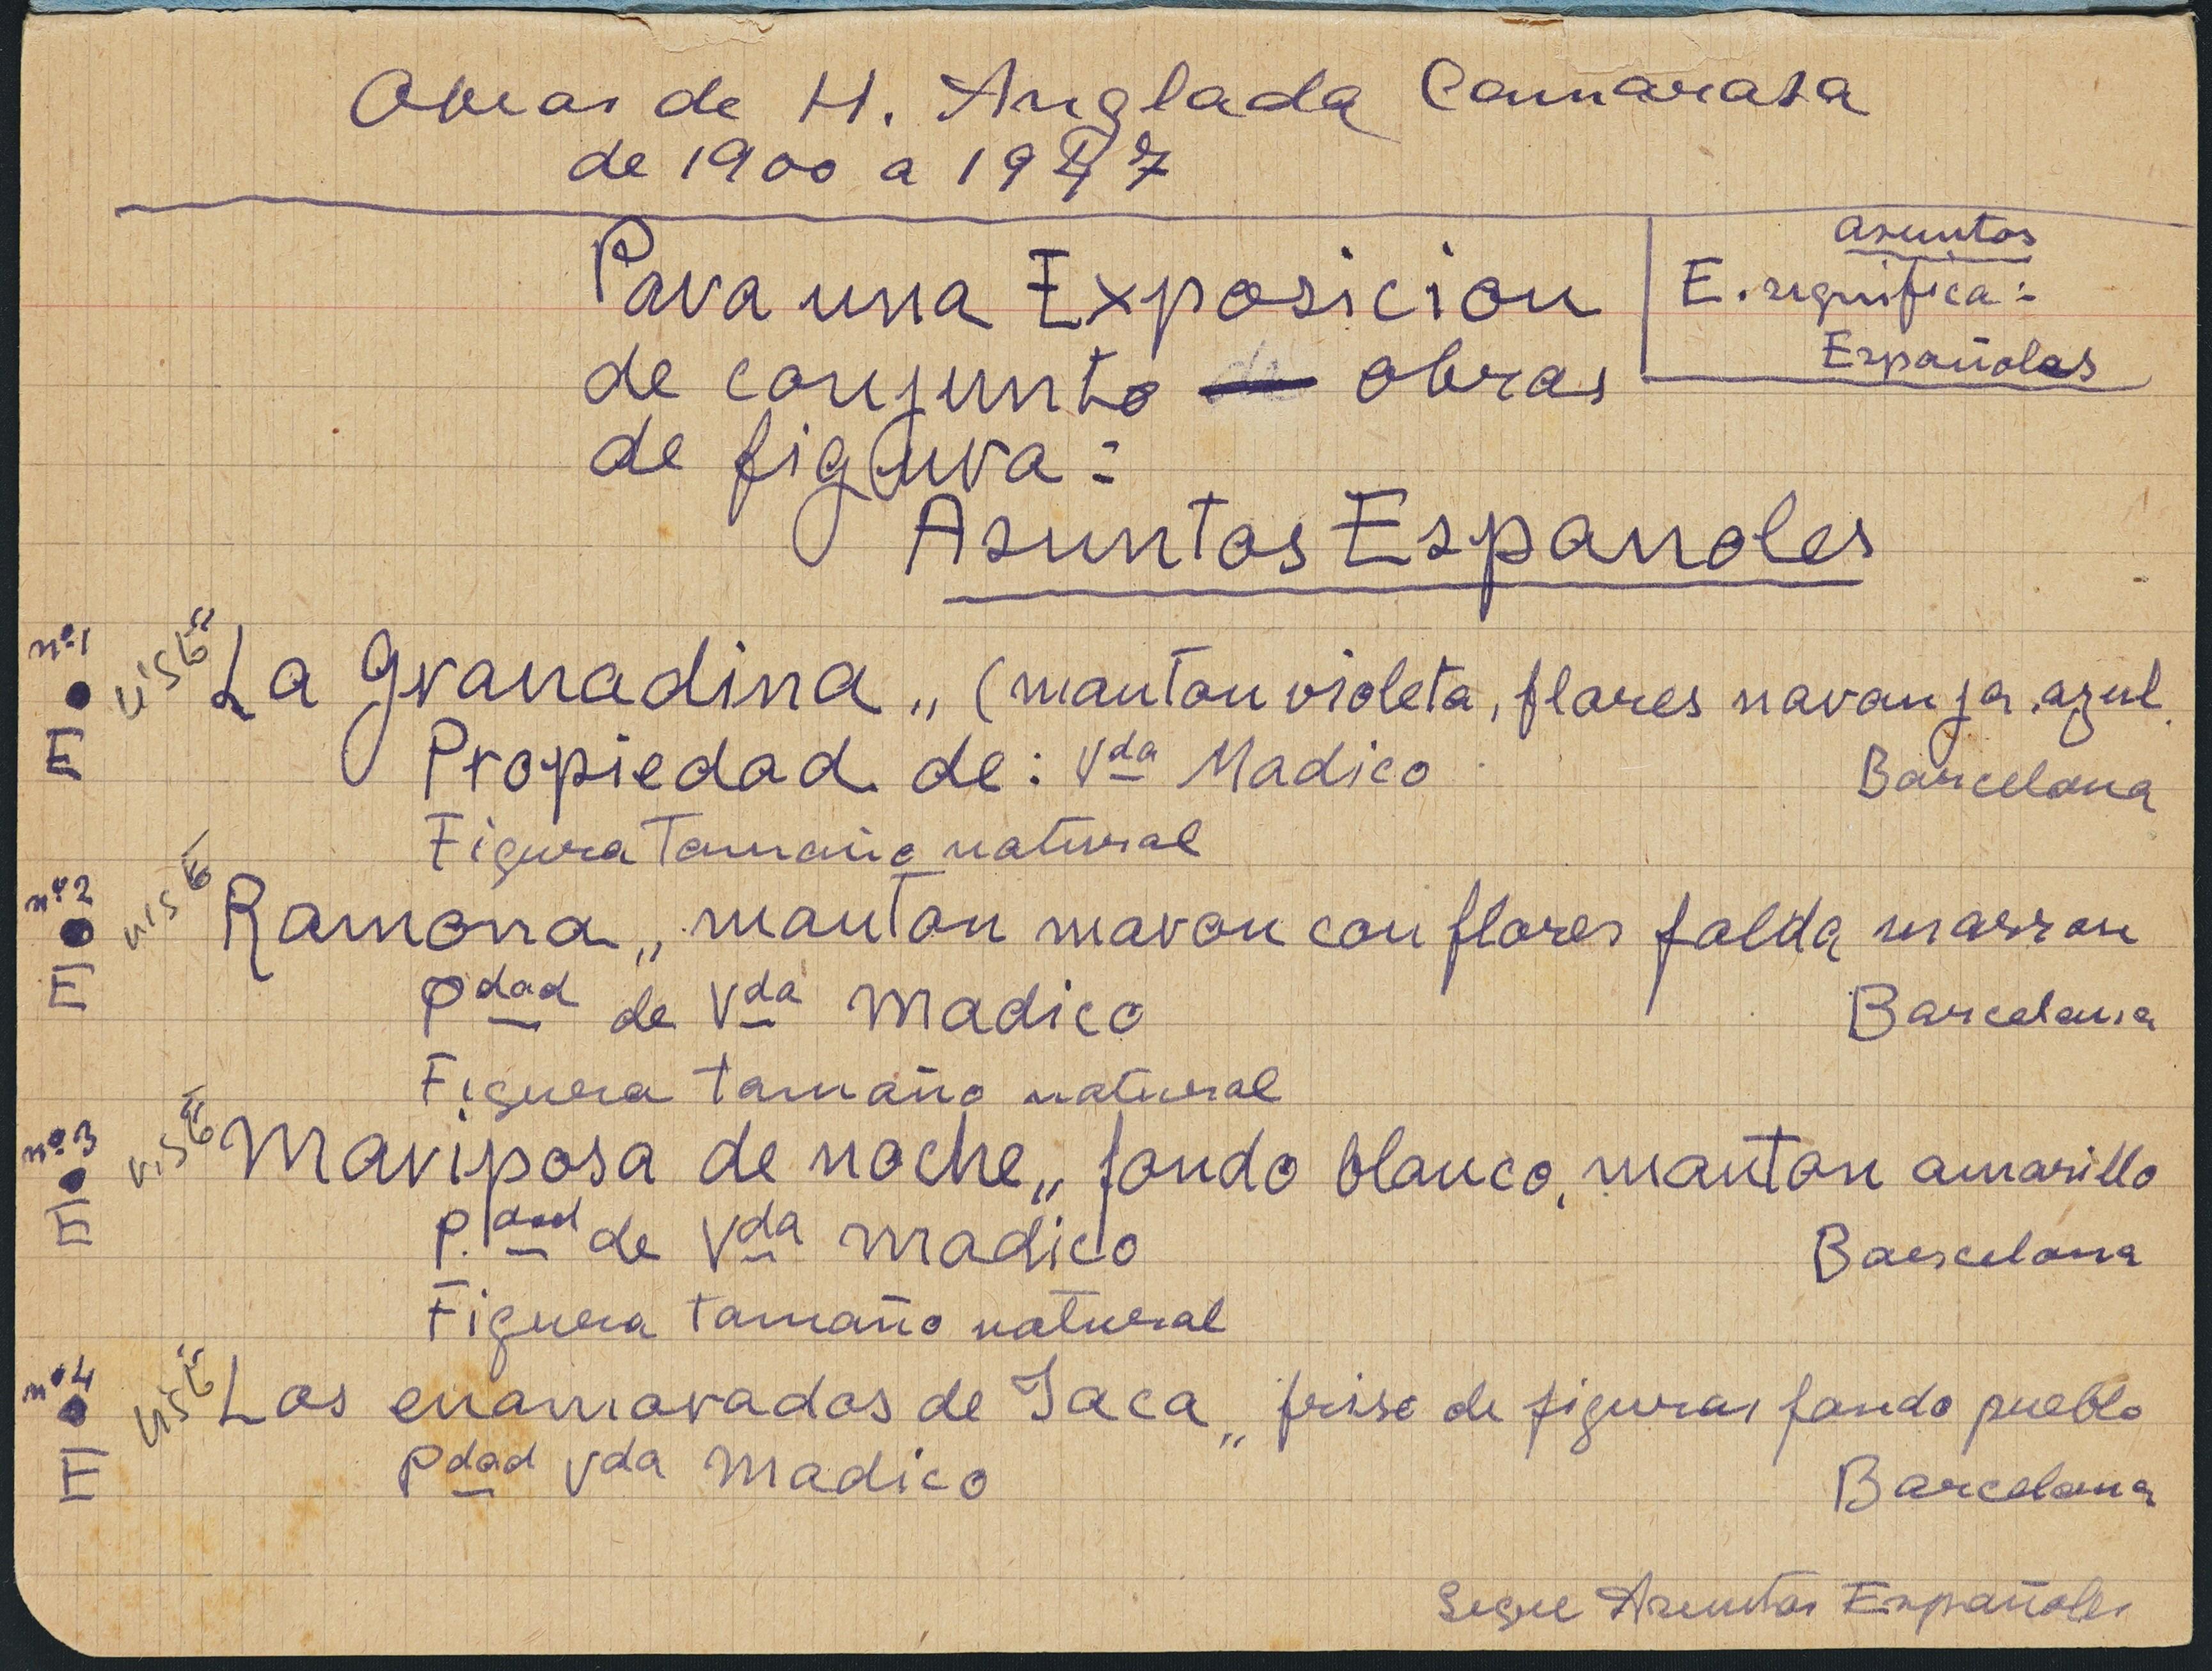 Obras de H. Anglada Camarasa
de 1900 a 1947
Para una Exposicion
de conjunto de obras
de figura:
asuntos
E. significa:
Españolas
Asuntos Espanoles
nº 1 visto La Granadina „ (manton violeta, flores naranja. azul.
E Propiedad de: Vda Madico Barcelona
Figura Tamaño natural
nº 2 visto Ramona „ manton maron con flores falda marron
E Pdad de Vda Madico Barcelona
Figura tamaño natural
nº 3 visto Mariposa de noche „ fondo blanco, manton amarillo
E P.dad de Vda Madico Barcelona
Figura tamaño natural
nº 4 visto Los enamorados de Jaca „ friso de figuras fondo pueblo
E Pdad Vda Madico Barcelona
Segue Asuntos Españoles